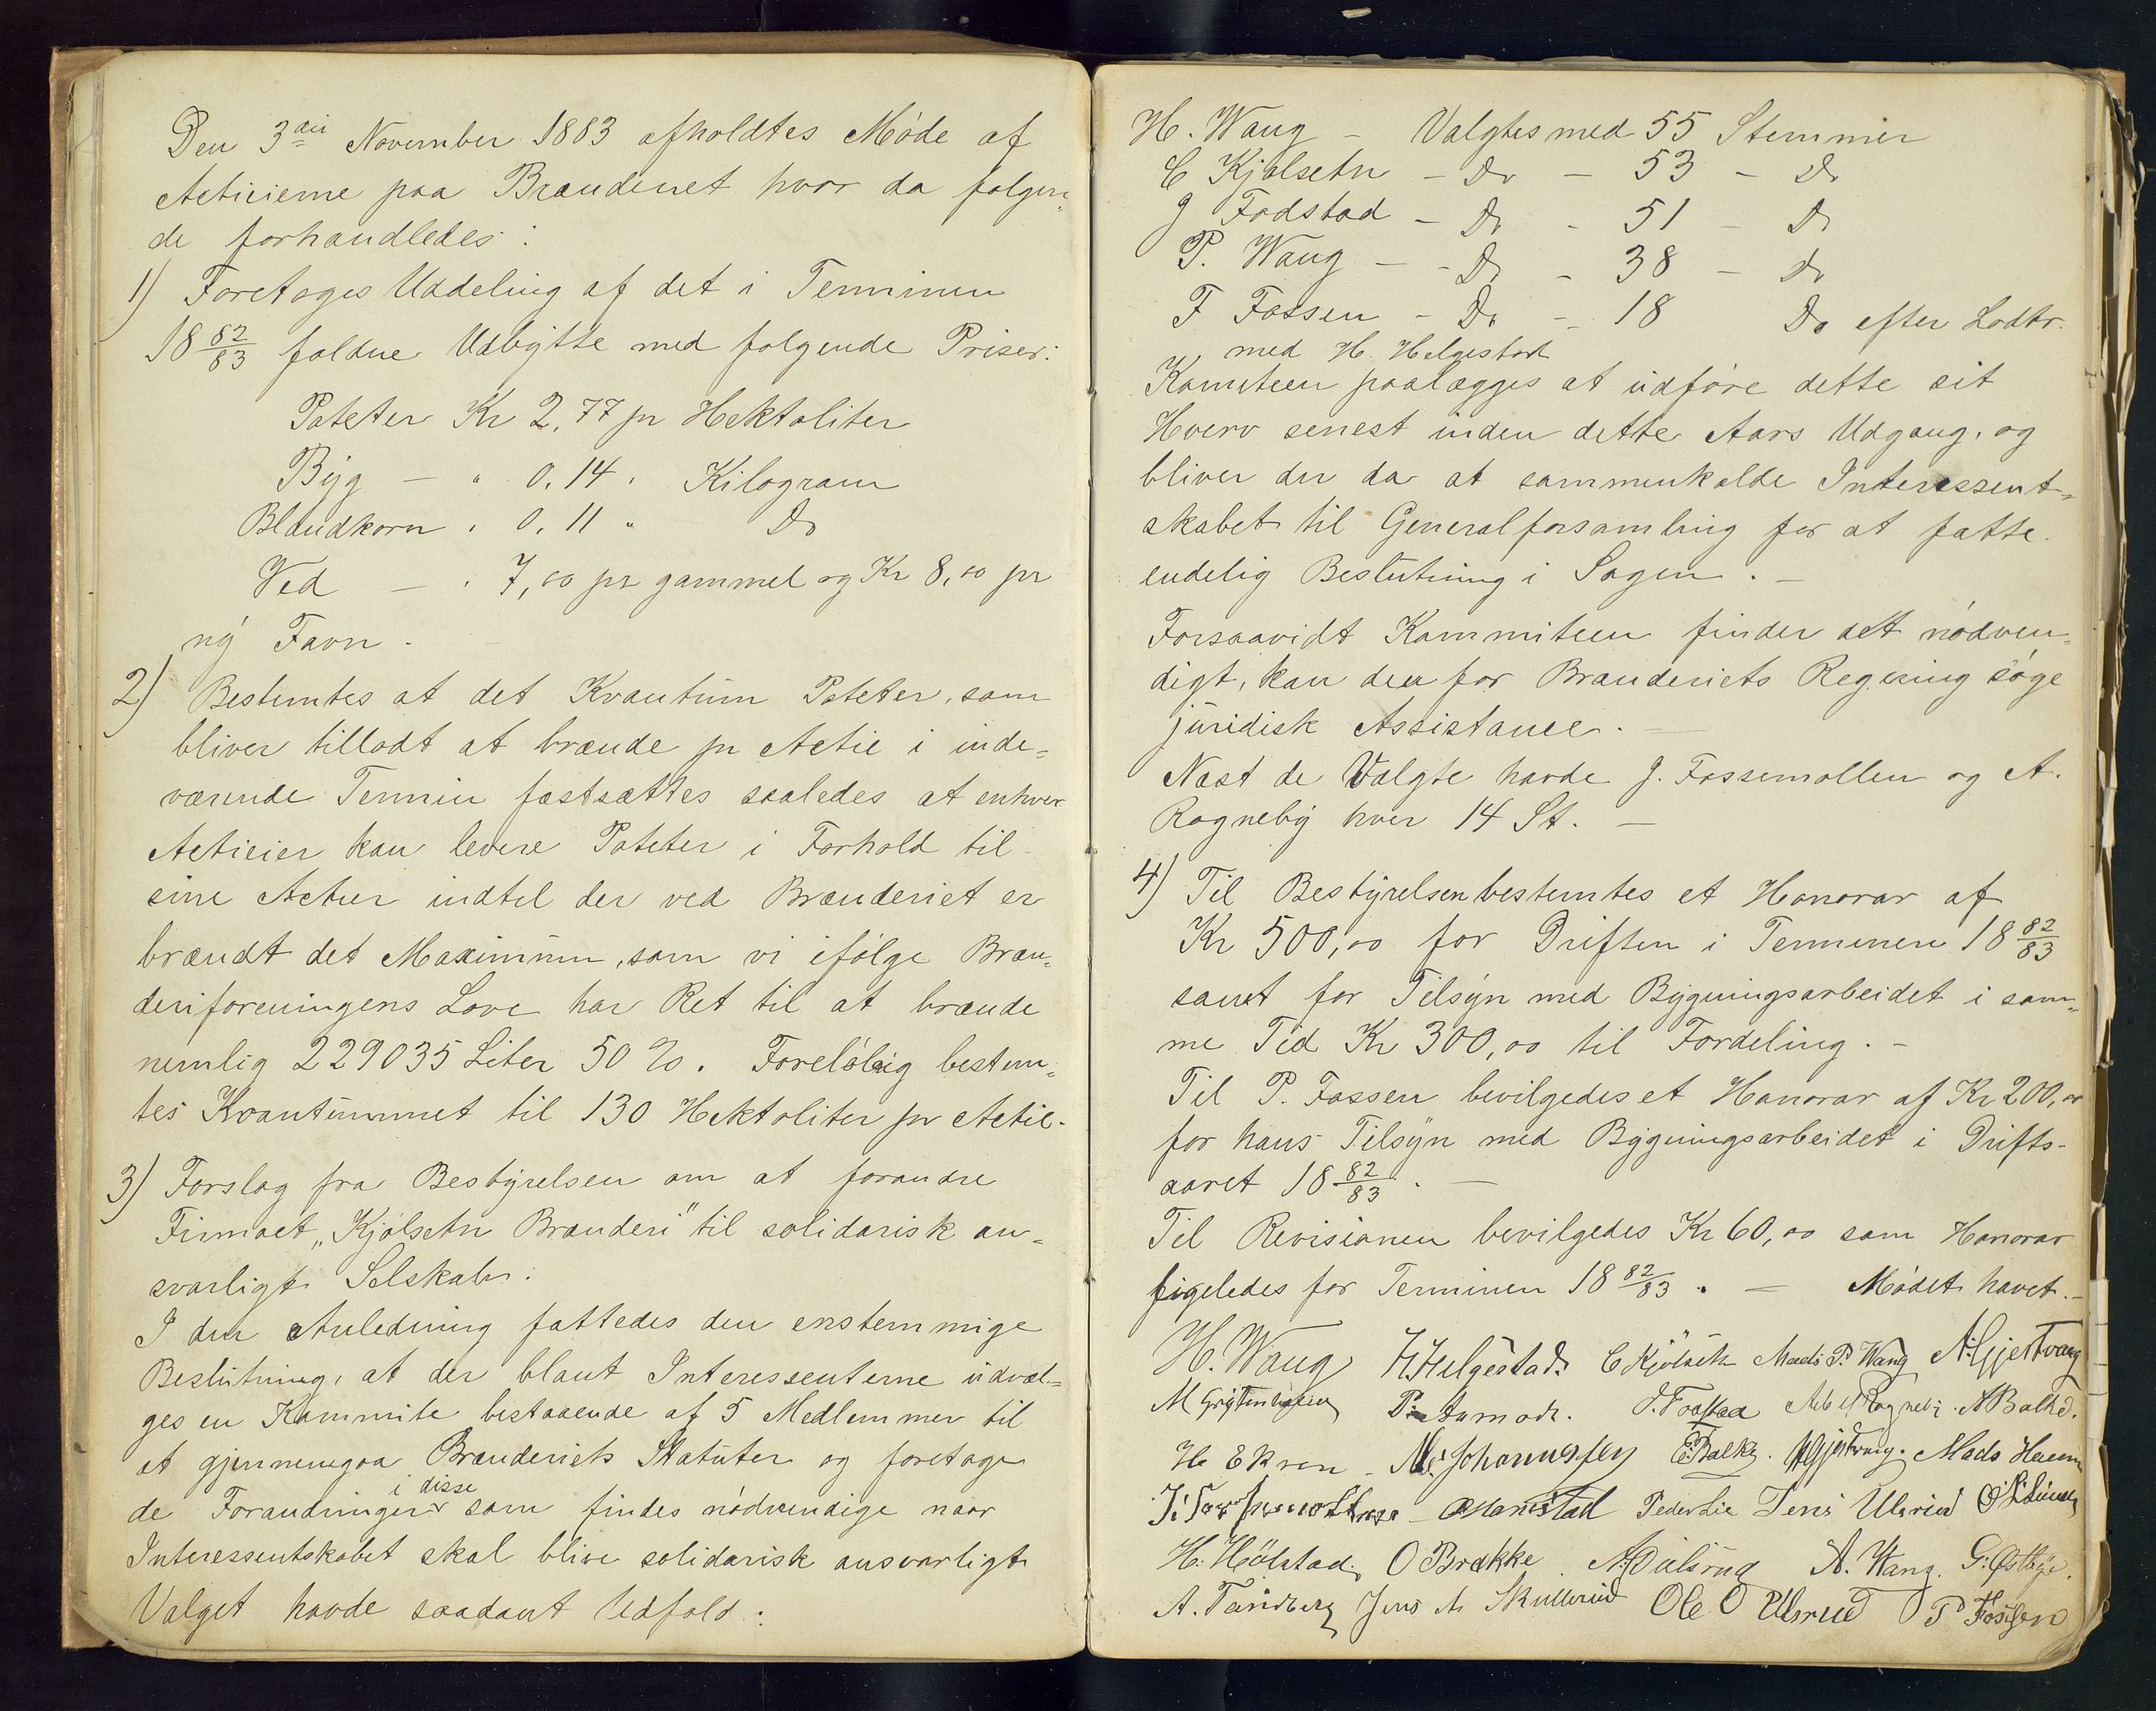 Den 3die November 1883 afholdtes Møde af
Actieierne paa Brænderiet hvor da følgen„
de forhandledes:
1) Foretoges Uddeling af det i Terminen
18 82/83 faldne Udbytte med følgende Priser:
Poteter Kr 2,77 pr Hektoliter
Byg — " 0,14 " Kilogram
Blandkorn " 0,11 " Do
Ved — " 7,00 pr gammel og Kr 8,00 pr
ny Favn.
2) Bestemtes at det Kvantum Poteter, som
bliver tilladt at brænde pr Actie i inde=
værende Termin fastsættes saaledes at enhver
Actieier kan levere Poteter i Forhold til
sine Actier indtil der ved Brænderiet er
brændt det Maximum, som vi ifølge Bræn„
deriforeningens Love har Ret til at brænde
nemlig 229035 Liter 50 %. Foreløbig bestem„
tes Kvantummet til 130 Hektoliter pr Actie.
3) Forslag fra Bestyrelsen om at forandre
Firmaet „Kjølsetn Brænderi" til solidarisk an=
svarligt Selskab.
I den Anledning fattedes den enstemmige
Beslutning, at der blant Interessenterne udvæl=
ges en Kommite bestaaende af 5 Medlemmer til
at gjennemgaa Brænderiets Statuter og foretage
i disse
de Forandringer som findes nødvendige naar
Interessentskabet skal blive solidarisk ansvarligt
Valget havde saadant Udfald:
H. Wang – Valgtes med 55 Stemmer
C Kjølsetn – Do – 53 – Do
J Fodstad – Do – 51 – Do
P. Wang – – Do – 38 – Do
F Fossen – Do – 18 Do efter Lodtr.
med H. Helgestad
Komiteen paalægges at udføre dette sit
Hverv senest inden dette Aars Udgang, og
bliver der da at sammenkalde Interessent„
skabet til Generalforsamling for at fatte
endelig Beslutning i Sagen. –
Forsaavidt Kommiteen finder det nødven„
digt, kan den for Brænderiets Regning søge
juridisk Assistance. —
Næst de Valgte havde J. Fossemøllen og A.
Rogneby hver 14 St. —
4) Til Bestyrelsen bestemtes et Honorar af
Kr 500,00 for Driften i Terminen 18 82/83
samt for Tilsyn med Bygningsarbeidet i sam„
me Tid Kr 300,00 til Fordeling. –
Til P. Fossen bevilgedes et Honorar af Kr 200,00
for hans Tilsyn med Bygningsarbeidet i Drifts-
aaret 18 82/83. —
Til Revisionen bevilgedes Kr 60,00 som Honorar
ligeledes for Terminen 18 82/83. — Mødet hævet. –
H. Wang H Helgestad C Kjölsetn Mads P. Wang N. Gjestvang
J. Fodstad A Balke.
H Ekren E. Balke. Gjestvang. Mads
Peder Lie Jens Ulsrud
H. Hölstad O Brække A. Wang. G: Østbye.
A. Tandberg Jens A Skullerud Ole O Ulsrud P Fossen